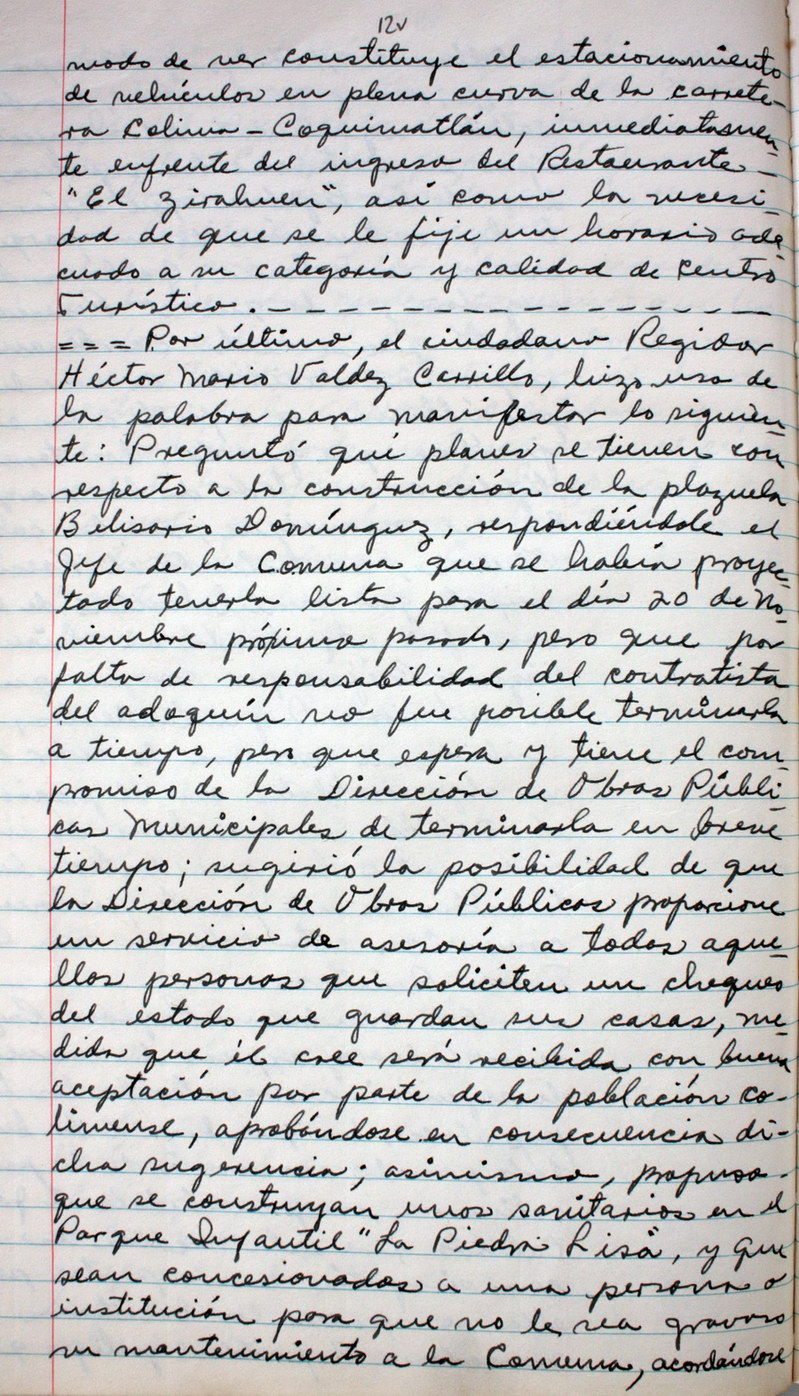 12v
modo de ver constituye el estacionamiento
de vehículos en plena curva de la carrete-
ra Colima - Coquimatlán, inmediatamen-
te enfrente del ingreso del Restaurante -
"El Zirahuen", así como la necesi-
dad de que se le fije un horario ade-
cuado a su categoría y calidad de Centro
Turístico. - - - - - - - - - - - - - - - -
= = = Por último, el ciudadano Regidor
Héctor Mario Valdez Carrillo, hizo uso de
la palabra para manifestar lo siguien-
te: Preguntó qué planes se tienen con
respecto a la construcción de la plazuela
Belisario Domínguez, respondiéndole el
Jefe de la Comuna que se había proyec-
tado tenerla lista para el día 20 de No-
viembre próximo pasado, pero que por
falta de responsabilidad del contratista
del adoquín no fue posible terminarla
a tiempo, pero que espera y tiene el com-
promiso de la Dirección de Obras Públi-
cas Municipales de terminarla en breve
tiempo; sugirió la posibilidad de que
la Dirección de Obras Públicas proporcione
un servicio de asesoría a todas aque-
llas personas que soliciten un chequeo
del estado que guardan sus casas, me-
dida que él cree será recibida con buena
aceptación por parte de la población co-
limense, aprobándose en consecuencia di-
cha sugerencia; asimismo, propuso -
que se construyan unos sanitarios en el
Parque Infantil "La Piedra Lisa", y que
sean concesionados a una persona o
institución para que no le sea gravoso
su mantenimiento a la Comuna, acordándose